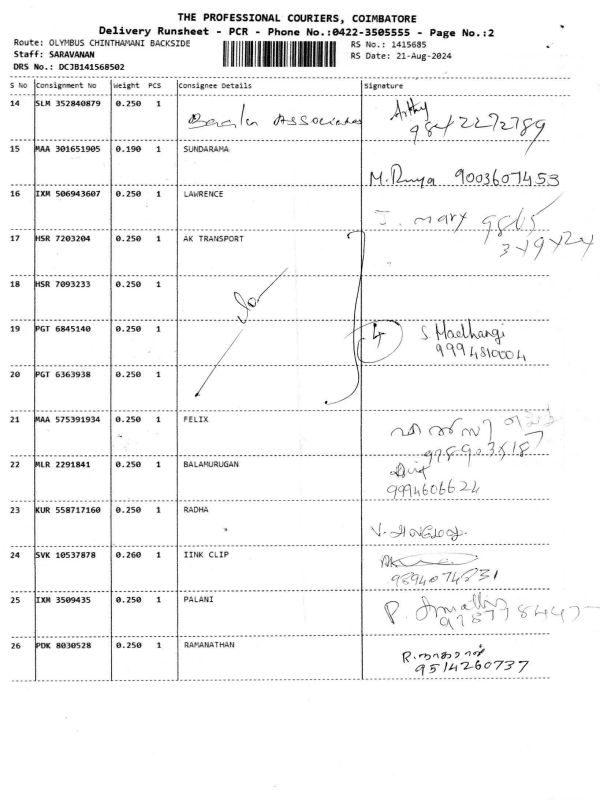 THE PROFESSIONAL COURIERS, COIMBATORE
Delivery Runsheet - PCR - Phone No.:0422-3505555 - Page No.:2
Route: OLYMBUS CHINTHAMANI BACKSIDE RS No.: 1415685
Staff: SARAVANAN RS Date: 21-Aug-2024
DRS No.: DCJB141568502
S No Consignment No Weight PCS Consignee Details Signature
14 SLM 352840879 0.250 1 Associates
9842272789
15 MAA 301651905 0.190 1 SUNDARAMA
M. 9003607453
16 IXM 506943607 0.250 1 LAWRENCE
J. mary 9865
17 HSR 7203204 0.250 1 AK TRANSPORT
18 HSR 7093233 0.250 1
19 PGT 6845140 0.250 1 4 S. Madhangi
9994810004
20 PGT 6363938 0.250 1
21 MAA 575391934 0.250 1 FELIX
22 MLR 2291841 0.250 1 BALAMURUGAN
9994606624
23 KUR 558717160 0.250 1 RADHA
24 SVK 10537878 0.260 1 IINK CLIP
9894074831
25 IXM 3509435 0.250 1 PALANI
P.
26 PDK 8030528 0.250 1 RAMANATHAN
R.
9514260737